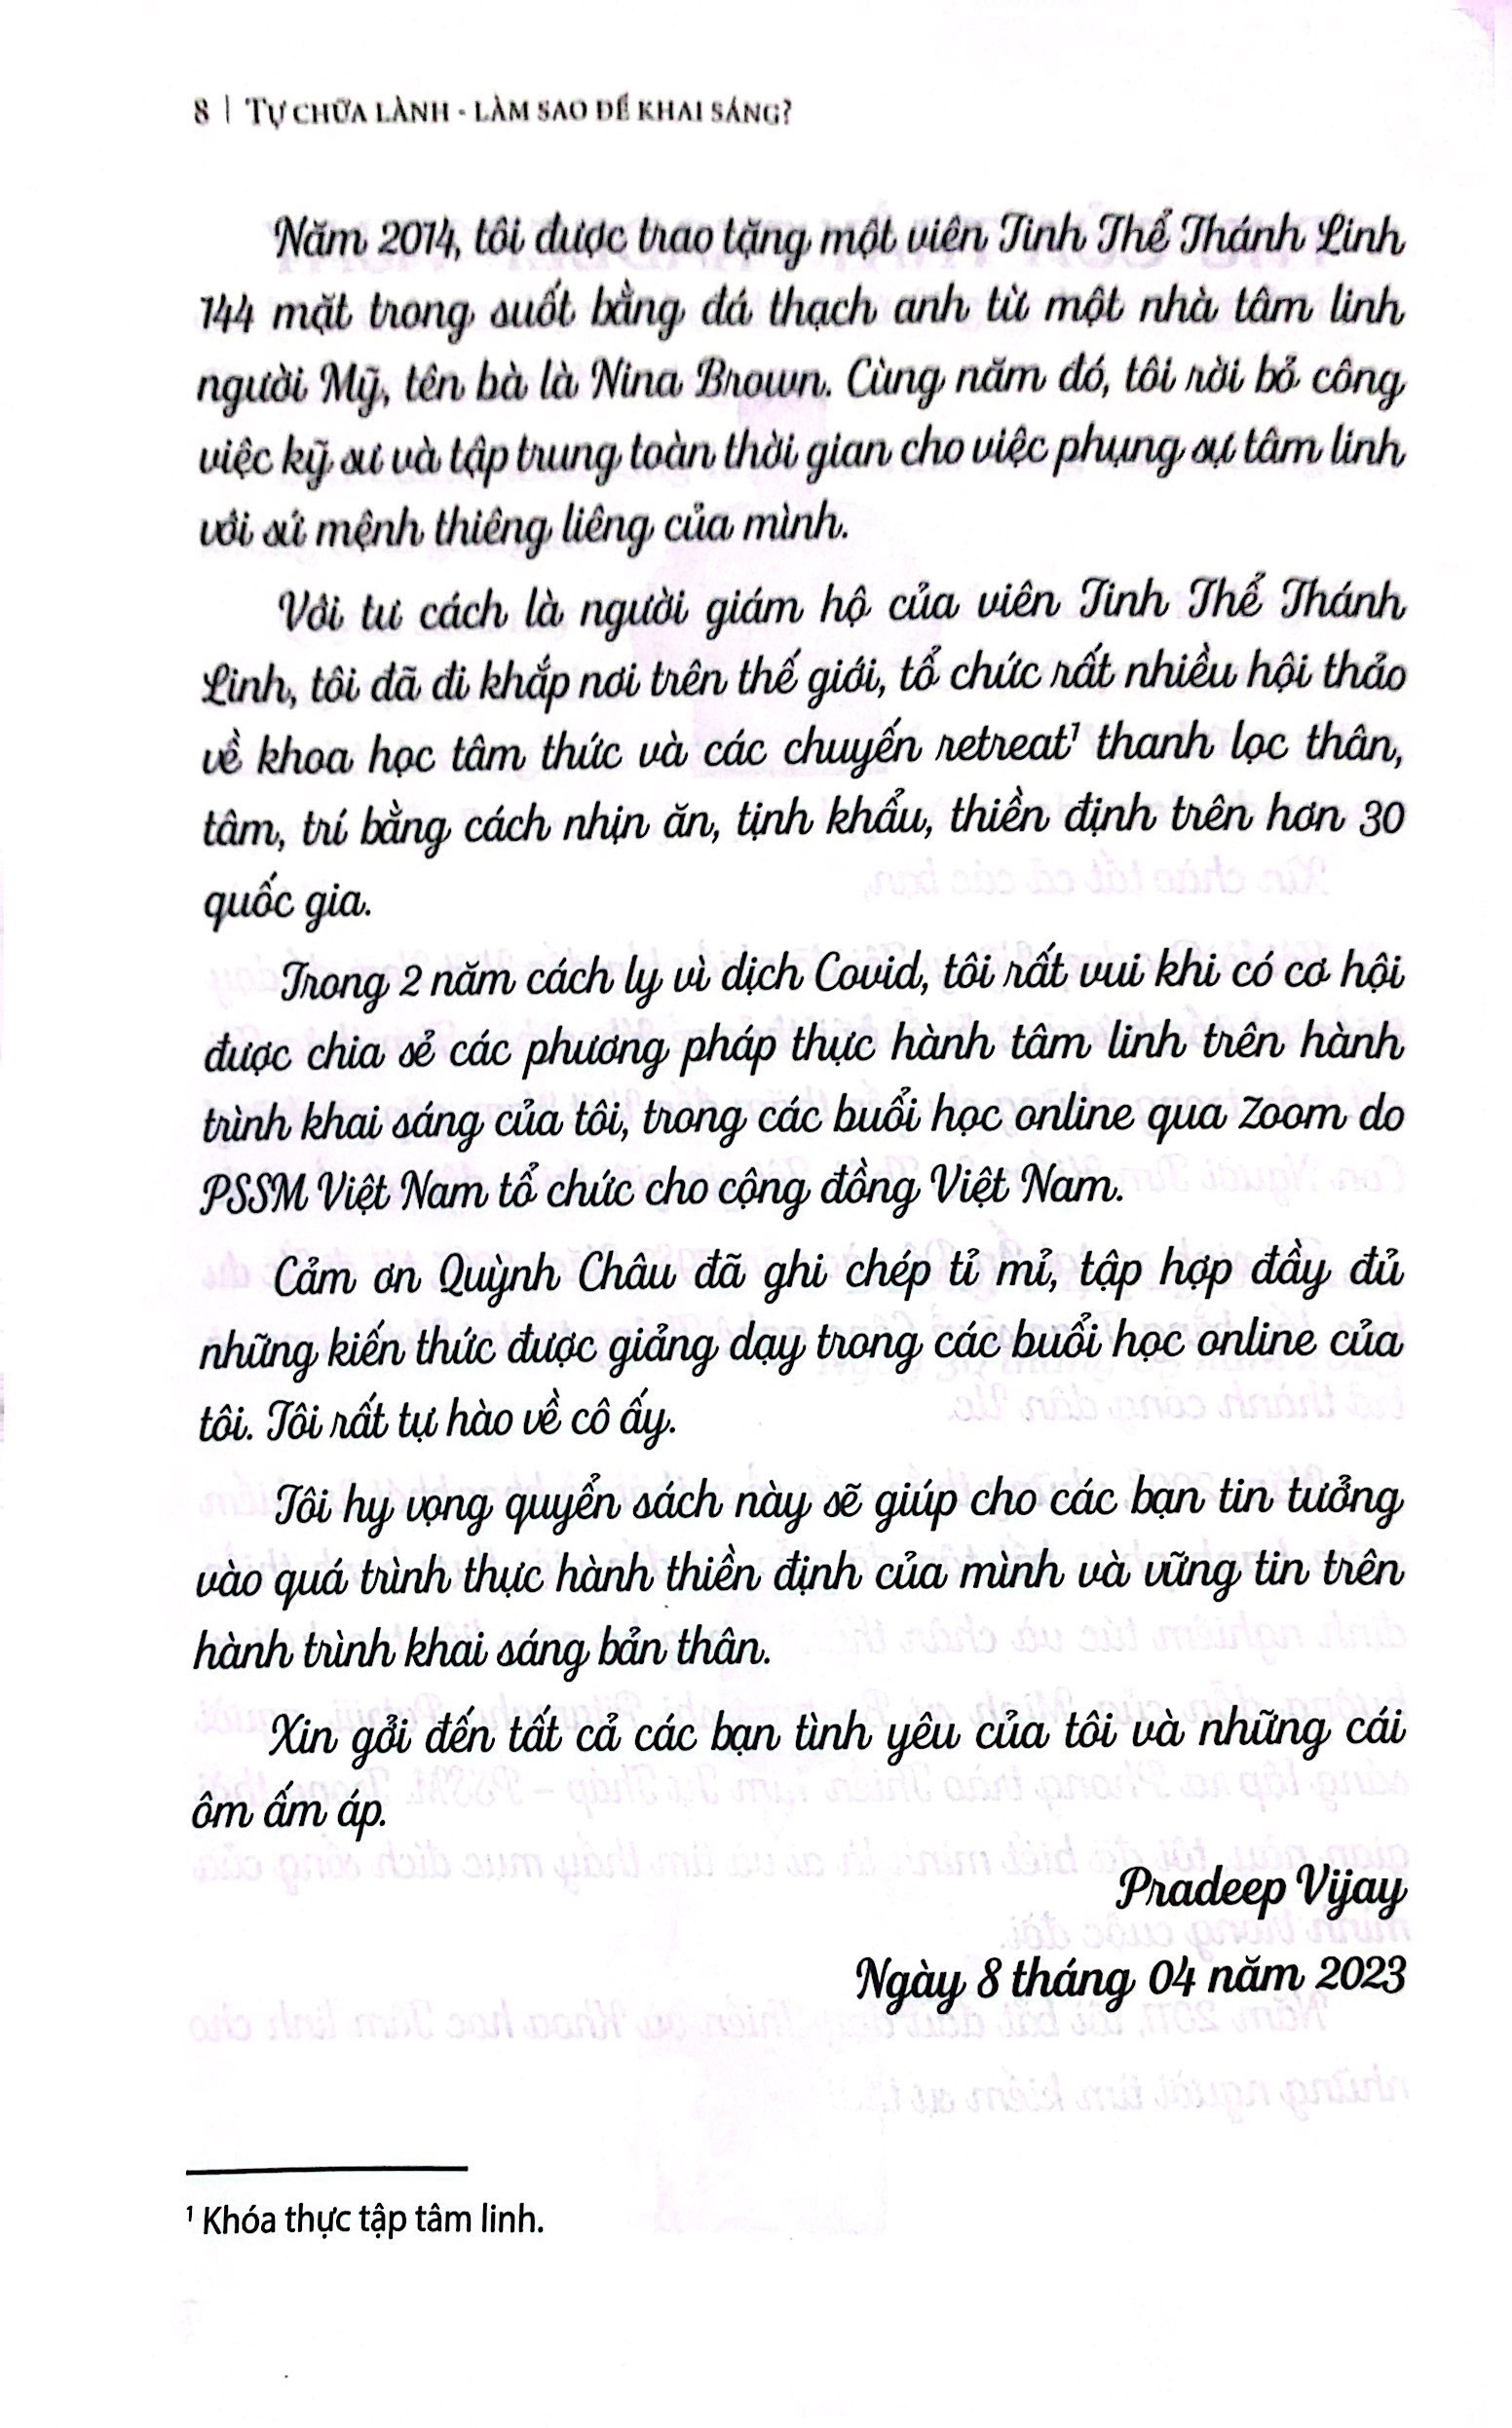 8 | TỰ CHỮA LÀNH - LÀM SAO ĐỂ KHAI SÁNG?
Năm 2014, tôi được trao tặng một viên Tinh Thể Thánh Linh
144 mặt trong suốt bằng đá thạch anh từ một nhà tâm linh
người Mỹ, tên bà là Nina Brown. Cùng năm đó, tôi rời bỏ công
việc kỹ sư và tập trung toàn thời gian cho việc phụng sự tâm linh
với sứ mệnh thiêng liêng của mình.
Với tư cách là người giám hộ của viên Tinh Thể Thánh
Linh, tôi đã đi khắp nơi trên thế giới, tổ chức rất nhiều hội thảo
về khoa học tâm thức và các chuyến retreat¹ thanh lọc thân,
tâm, trí bằng cách nhịn ăn, tịnh khẩu, thiền định trên hơn 30
quốc gia.
Trong 2 năm cách ly vì dịch Covid, tôi rất vui khi có cơ hội
được chia sẻ các phương pháp thực hành tâm linh trên hành
trình khai sáng của tôi, trong các buổi học online qua Zoom do
PSSM Việt Nam tổ chức cho cộng đồng Việt Nam.
Cảm ơn Quỳnh Châu đã ghi chép tỉ mỉ, tập hợp đầy đủ
những kiến thức được giảng dạy trong các buổi học online của
tôi. Tôi rất tự hào về cô ấy.
Tôi hy vọng quyển sách này sẽ giúp cho các bạn tin tưởng
vào quá trình thực hành thiền định của mình và vững tin trên
hành trình khai sáng bản thân.
Xin gởi đến tất cả các bạn tình yêu của tôi và những cái
ôm ấm áp.
Pradeep Vijay
Ngày 8 tháng 04 năm 2023
¹ Khóa thực tập tâm linh.